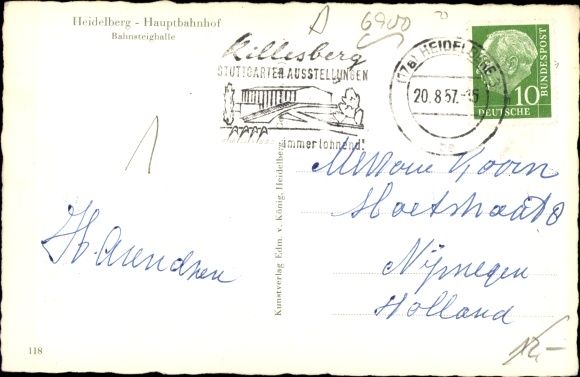 Heidelberg - Hauptbahnhof
Bahnsteighalle
6900
Killesberg
STUTTGARTER AUSSTELLUNGEN
"immer lohnend"
(17a) HEIDELBERG
20.8.57.-15
BUNDESPOST
10
DEUTSCHE
Mevrouw Koorn
8
Nijmegen
Holland
H. Arendsen
Kunstverlag Edm. v. König, Heidelberg
118